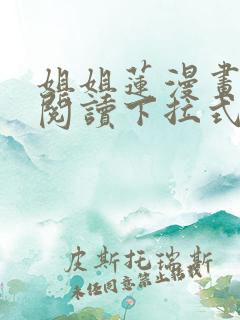 姐姐蓮漫畫
閱讀下拉式
皮斯托瑞斯
未经同意禁止转载